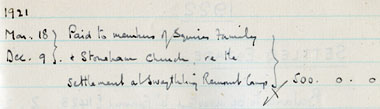 1921
Mar. 18 } Paid to members of Squires Family
Dec. 9 } & Stoneham Church, re the
settlement at Swaythling Remount Camp } 500 . 0 . 0